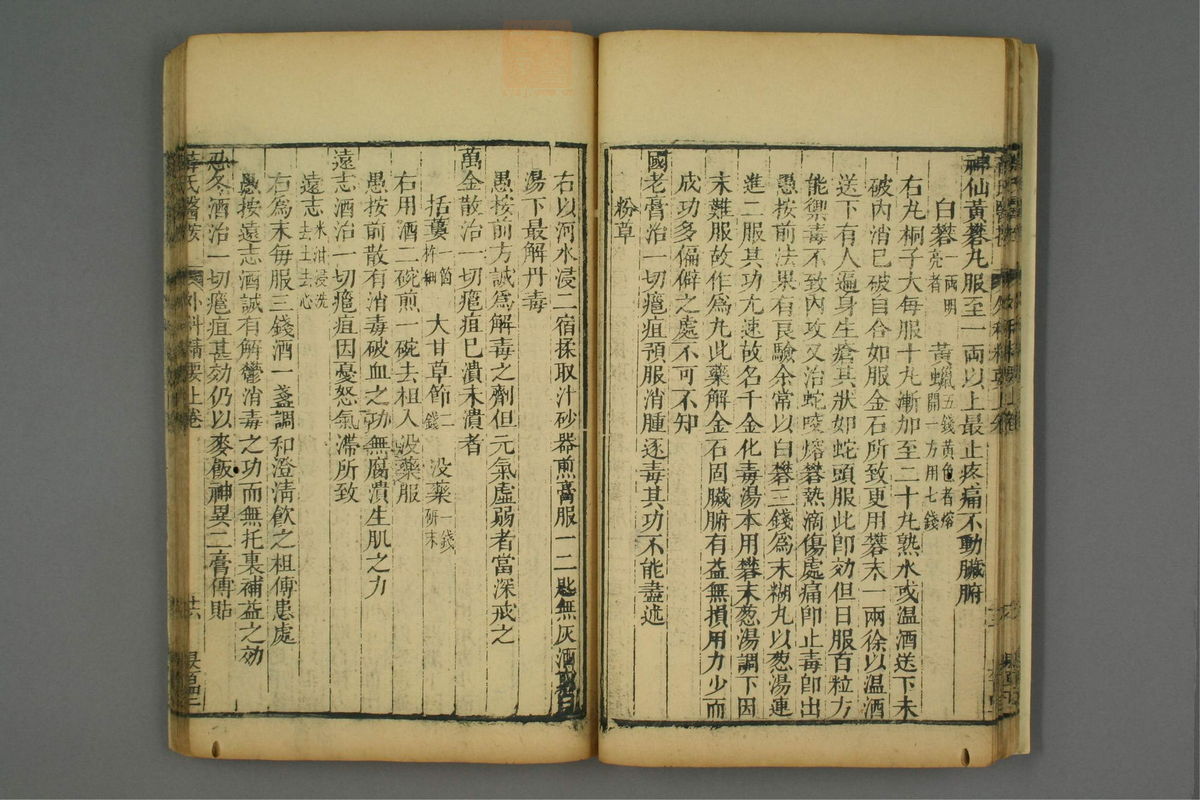 神仙黃礬丸服至一兩以上最止疼痛不動臟腑
白礬一兩明亮者 黃蠟五錢黃色者熔開一方用七錢
右丸桐子大每服十丸漸加至二十丸熟水或温酒送下未
破內消已破自合如服金石所致更用礬末一兩徐以温酒
送下有人遍身生瘡其狀如蛇頭服此卽効但日服百粒方
能禦毒不致內攻又治蛇咬熔礬熱滴傷處痛卽止毒卽出
愚按前法果有良驗余常以白礬三錢爲末糊丸以葱湯連
進二服其功尢速故名千金化毒湯本用礬末葱湯調下因
末難服故作爲丸此藥解金石固臟腑有益無損用力少而
成功多偏僻之處不可不知
國老膏治一切癰疽預服消腫逐毒其功不能盡述
粉草
右以河水浸二宿揉取汁砂器煎膏服一二匙無灰酒
湯下最解丹毒
愚按前方誠爲解毒之劑但元氣虛弱者當深戒之
萬金散治一切癰疽已潰未潰者
括蔞一箇杵細 大甘草節二錢 没藥一錢研末
右用酒二碗煎一碗去柤入没藥服
愚按前散有消毒破血之功無腐潰生肌之力
遠志酒治一切癰疽因憂怒氣滯所致
遠志米泔浸洗去土去心
右爲末每服三錢酒一盞調和澄清飲之柤傅患處
愚按遠志酒誠有解鬱消毒之功而無托裏補益之効
忍冬酒治一切癰疽甚効仍以麥飯神異二膏傅貼
薛氏醫按 外科精要上卷